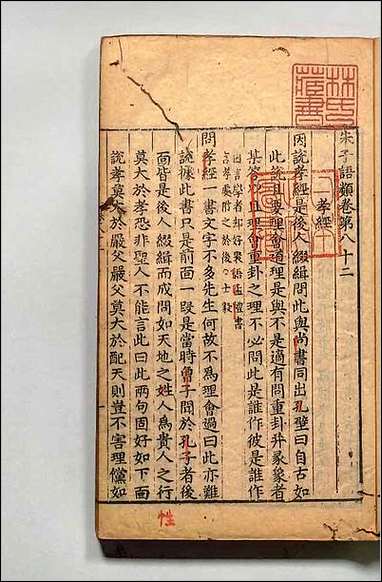 林氏藏書
朱子語類卷第八十二
孝經
因說孝經是後人綴緝問此與尚書同出孔壁曰自古如
此說且要理會道理是與不是適有問重卦并彖象者
某答以且理會重卦之理不必問此是誰作彼是誰作
因言學者却好聚語孟禮書
言孝處附之於後士毅
問孝經一書文字不多先生何故不為理會過曰此亦難
說據此書只是前面一段是當時曾子聞於孔子者後
面皆是後人綴緝而成問如天地之姓人為貴人之行
莫大於孝恐非聖人不能言此曰此兩句固好如下面
說孝莫大於嚴父嚴父莫大於配天則豈不害理儻如
性